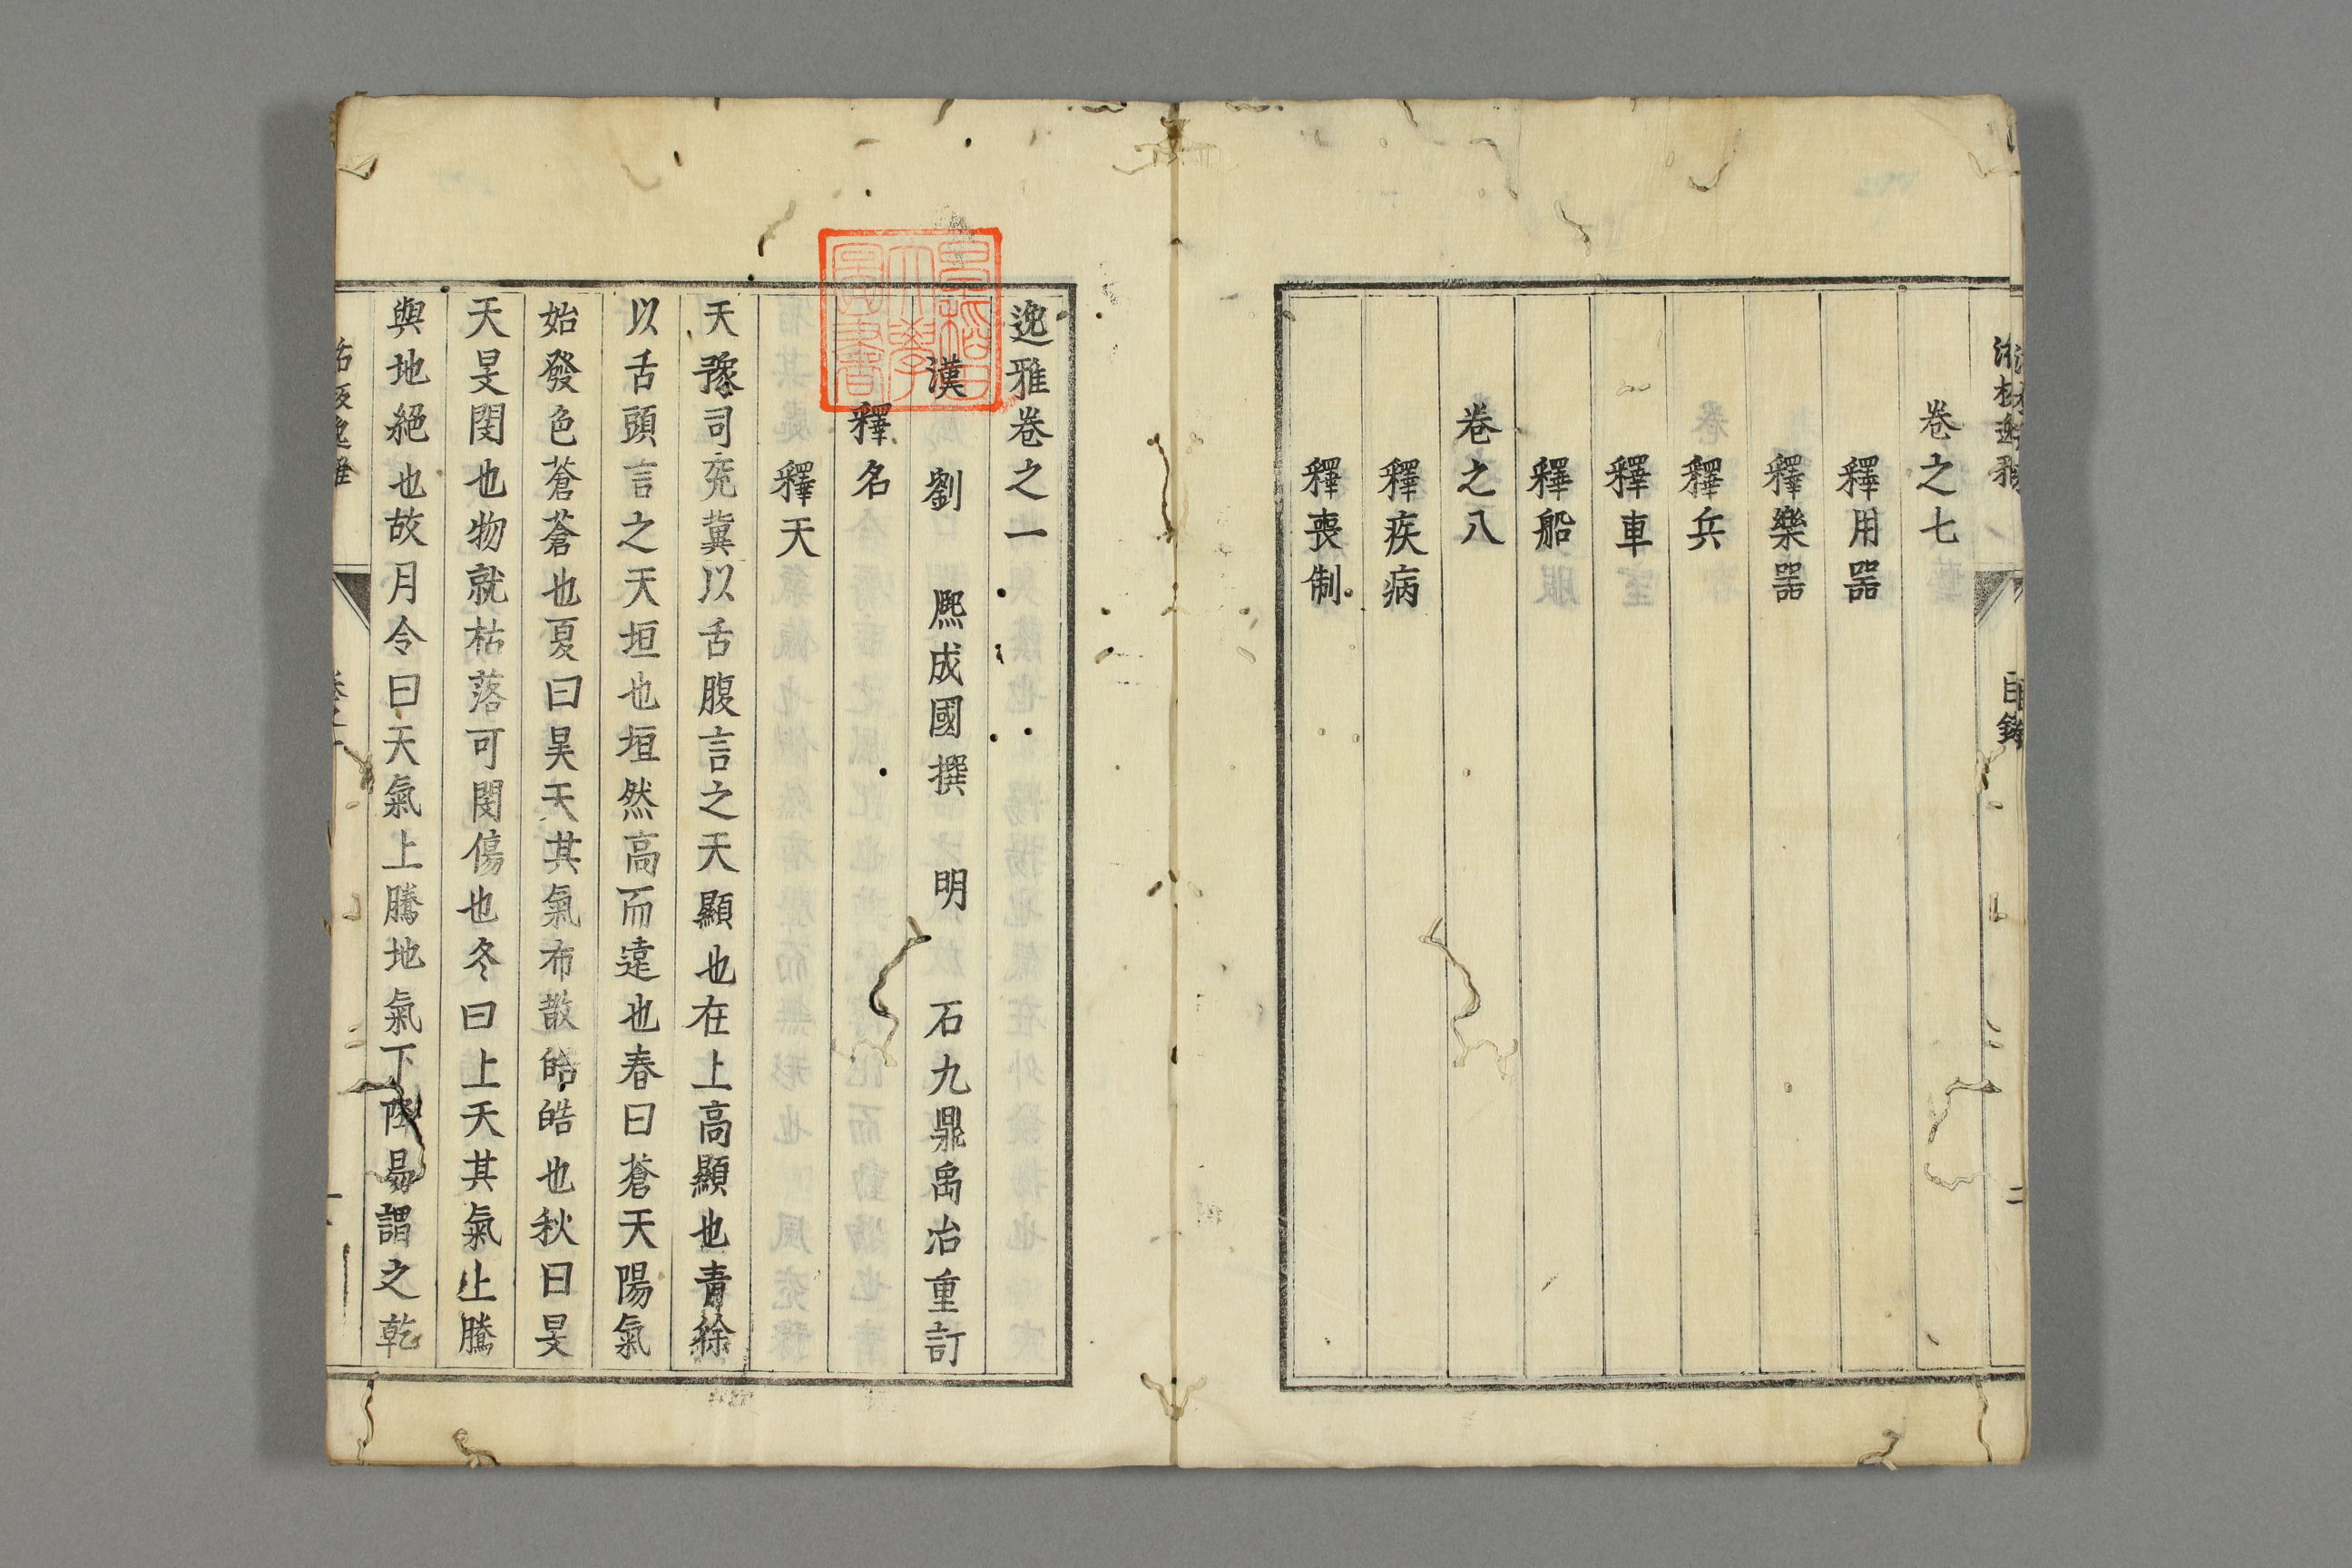 卷之七
釋用器
釋樂器
釋兵
釋車
釋船
卷之八
釋疾病
釋喪制
目錄
二
逸雅卷之一
漢 劉 熈成國撰 明 石九鼎禹冶重訂
釋名
釋天
天豫司兖冀以舌腹言之天顯也在上高顯也青徐
以舌頭言之天垣也垣然高而遠也春曰蒼天陽氣
始發色蒼蒼也夏曰昊天其氣布散皓皓也秋曰旻
天旻閔也物就枯落可閔傷也冬曰上天其氣上騰
與地絕也故月令曰天氣上騰地氣下降易謂之乾
早稻田大學圖書